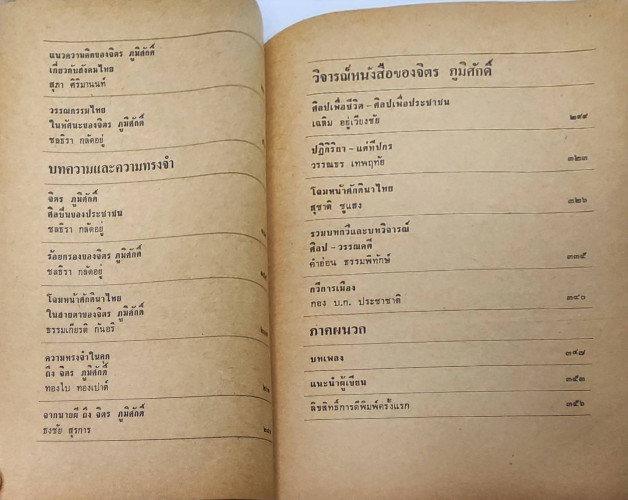 แนวความคิดของจิตร ภูมิศักดิ์
เกี่ยวกับสังคมไทย
สุภา ศิริมานนท์
วรรณกรรมไทย
ในทัศนะของจิตร ภูมิศักดิ์
ชลธิรา กลัดอยู่
บทความและความทรงจำ
จิตร ภูมิศักดิ์
ศิลปินของประชาชน
ชลธิรา กลัดอยู่
ร้อยกรองของจิตร ภูมิศักดิ์
ชลธิรา กลัดอยู่
โฉมหน้าศักดินาไทย
ในสายตาของจิตร ภูมิศักดิ์
ธรรมเกียรติ กันอริ
ความทรงจำในคุก
ถึง จิตร ภูมิศักดิ์
ทองใบ ทองเปาด์
จากนายผี ถึง จิตร ภูมิศักดิ์
ธงชัย สุรการ
วิจารณ์หนังสือของจิตร ภูมิศักดิ์
ศิลปเพื่อชีวิต – ศิลปเพื่อประชาชน
เฉลิม อยู่เวียงชัย ๒๙๙
ปฏิกิริยา – แด่ทีปกร
วรรณธร เทพฤทัย ๓๒๓
โฉมหน้าศักดินาไทย
สุชาติ ชูแสง ๓๒๖
รวมบทกวีและบทวิจารณ์
ศิลป – วรรณคดี
คำอ่อน ธรรมพิทักษ์ ๓๓๕
กวีการเมือง
กอง บ.ก. ประชาชาติ ๓๔๐
ภาคผนวก
บทเพลง ๓๔๗
แนะนำผู้เขียน ๓๕๓
ลิขสิทธิ์การตีพิมพ์ครั้งแรก ๓๕๖